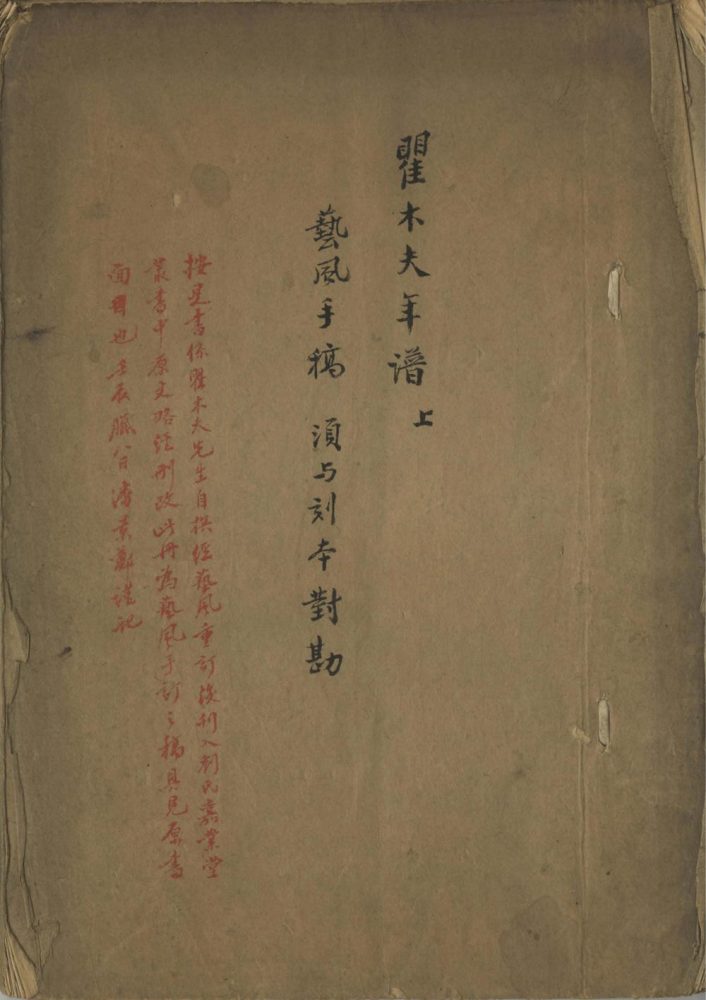 瞿木夫年谱上
藝風手稿 須与刻本對勘
按是書係瞿木夫先生自撰經藝風重訂後刊入劉氏嘉業堂
叢書中原文略經刪改此冊為藝風手訂之稿具見原書
面目也壬辰臘八日潘景鄭謹記